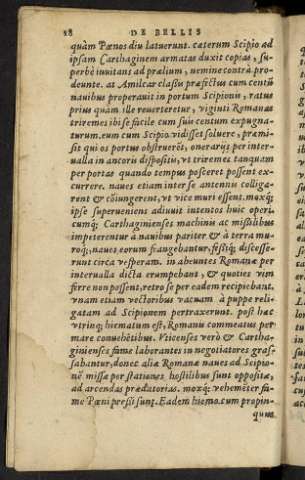 28 DE BELLIS
quàm Pœnos diu latuerunt. cæterum Scipio ad
ipsam Carthaginem armatas duxit copias, su-
perbè inuitans ad prælium, nemine contrà pro-
deunte. at Amilcar classis præfectus cum centũ
nauibus properauit in portum Scipionis, ratus
prius quàm ille reuerteretur, viginti Romanas
triremes ibi se facile cum suis centum expugna-
turum. eum cum Scipio vidisset soluere, præmi-
sit qui os portus obstruerẽt, onerarijs per inter-
ualla in ancoris dispositis, vt triremes tanquam
per portas quando tempus posceret possent ex-
currere. naues etiam inter se antennis colliga-
rent & cõiungerent, vt vice muri essent. moxq́;
ipse superueniens adiuuit intentos huic operi.
cumq́; Carthaginienses machinis ac missilibus
impeterentur à nauibus pariter & à terra mu-
roq́;, naues eorum frangebantur, fessiq́; discesse-
runt circa vesperam. in abeuntes Romanæ per
interualla dicta erumpebant, & quoties vim
ferre non possent, retro se per eadem recipiebant.
vnam etiam vectoribus vacuam à puppe reli-
gatam ad Scipionem pertraxerunt. post hæc
vtrinq; hiematum est, Romanis commeatus per
mare conuehẽtibus. Vticenses verò & Cartha-
ginienses fame laborantes in negotiatores gras-
sabantur, donec aliæ Romanæ naues ad Scipio-
nẽ missæ per stationes hostilibus sunt oppositæ,
ad arcendas prædatorias. moxq́; vehemẽter fa-
me Pœni pressi sunt. Eadem hieme, cum propin-
qua